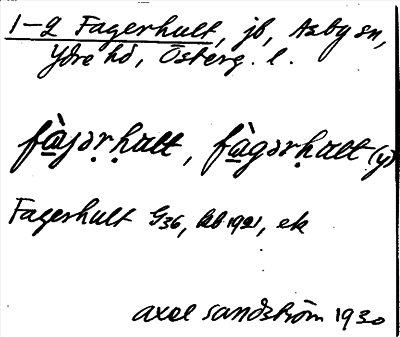 1-2 Fagerhult, jb, Asby sn,
Ydre hd, Österg. l.
fàjərhult, fàgərhult (y)
Fagerhult G36, kb 1921, ek
Axel Sandström 1930